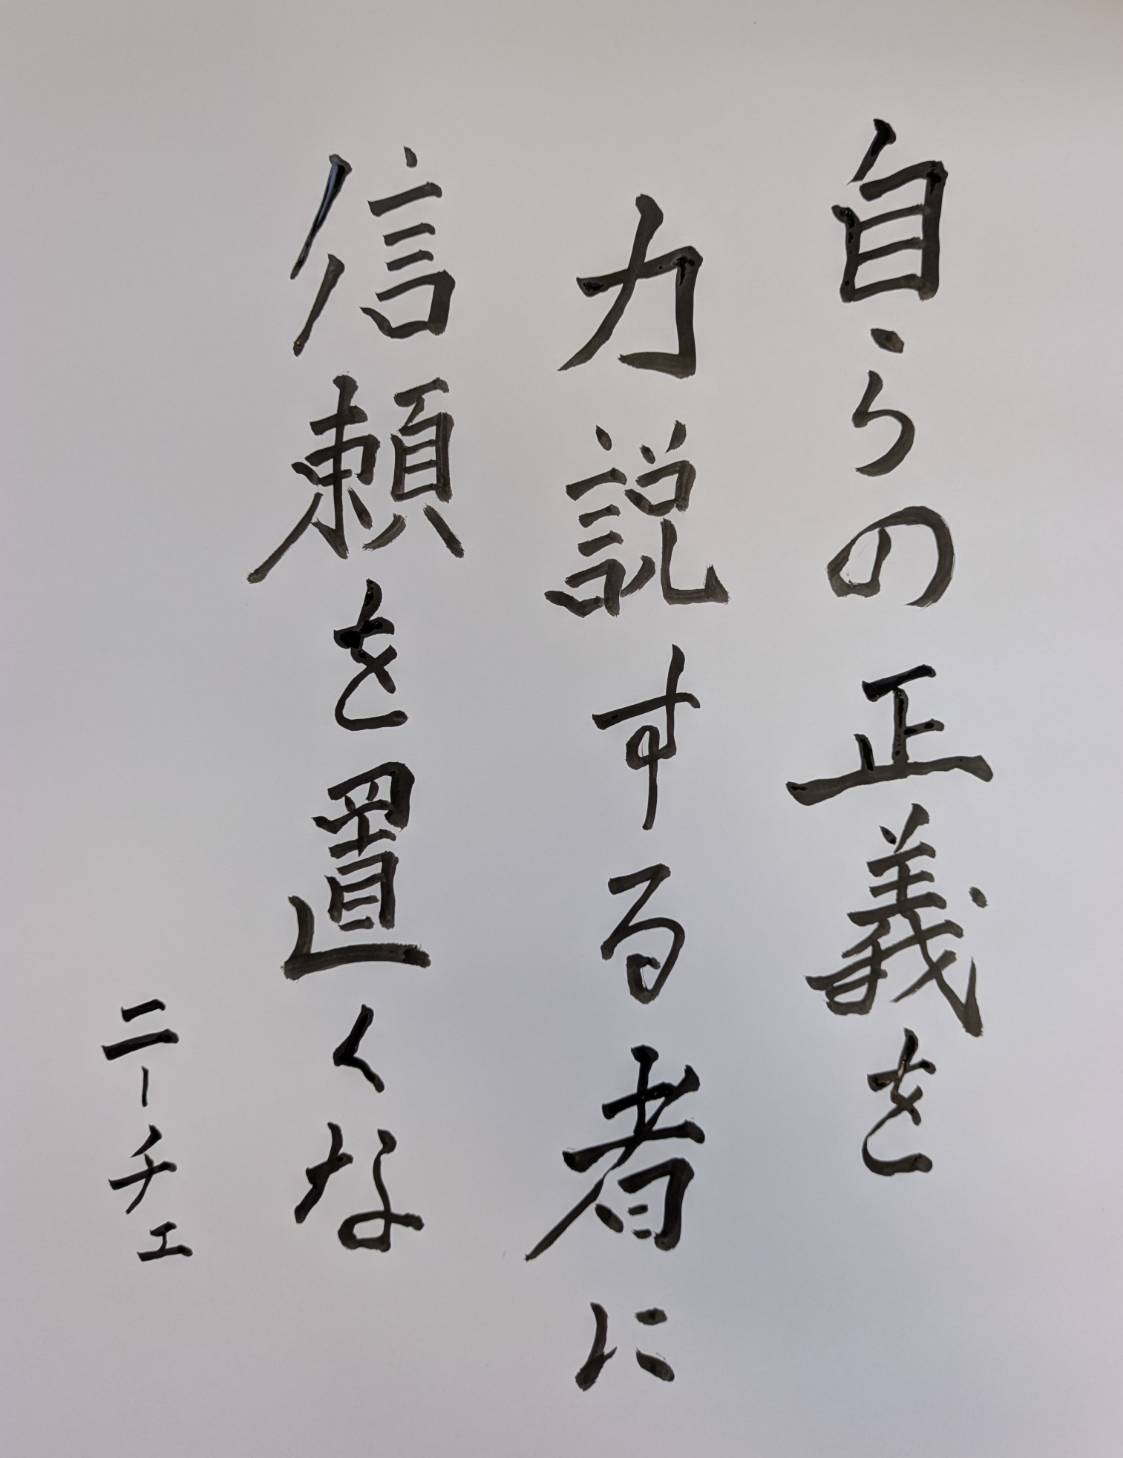 自らの正義を
力説する者に
信頼を置くな
ニーチェ